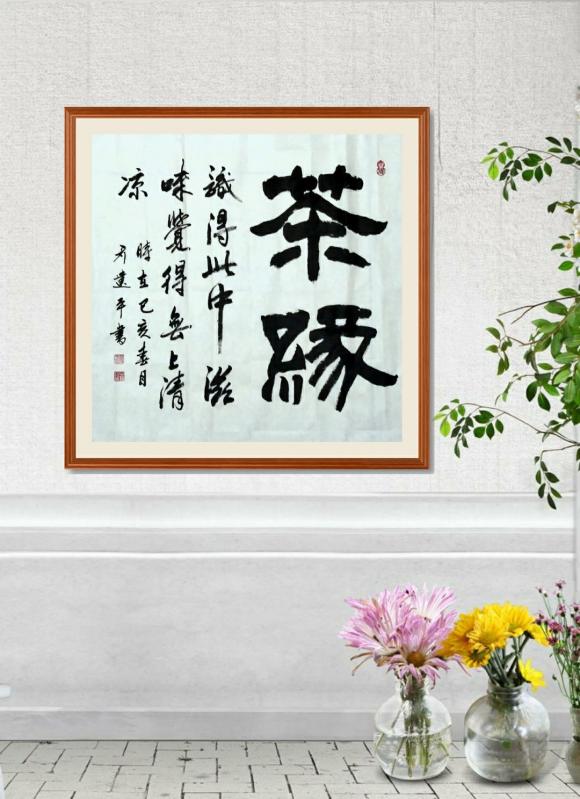 茶緣
識得此中滋
味覺得無上清
凉
時在己亥春月
建平書